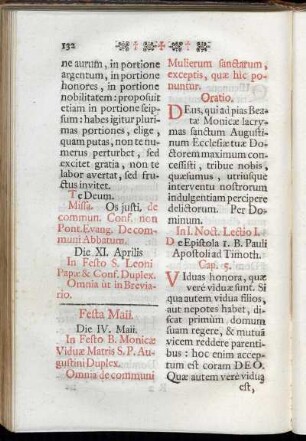 132
ne aurum, in portione
argentum, in portione
honores, in portione
nobilitatem: proposuit
etiam in portione seip-
sum: habes igitur pluri-
mas portiones, elige,
quam putas, non te nu-
merus perturbet, sed
excitet gratia, non te
labor avertat, sed fru-
ctus invitet.
Te Deum.
Missa. Os justi, de
commun. Conf. non
Pont. Evang. De com-
muni Abbatum.
Die XI. Aprilis
In Festo S. Leoni
Papæ & Conf. Duplex.
Omnia ut in Brevia-
rio.
Festa Maii.
Die IV. Maii.
In Festo B. Monicæ
Viduæ Matris S. P. Au-
gustini Duplex.
Omnia de communi
Mulierum sanctarum,
exceptis, quæ hic po-
nuntur.
Oratio.
DEus, qui ad pias Bea-
tæ Monicæ lacry-
mas sanctum Augusti-
num Ecclesiæ tuæ Do-
ctorem maximum con-
cessisti, tribue nobis,
quæsumus, utriusque
interventu nostrorum
indulgentiam percipere
delictorum. Per Do-
minum.
In I. Noct. Lectio I.
De Epistola 1. B. Pauli
Apostoli ad Timoth.
Cap. 5.
VIduas honora, quæ
verè viduæ sunt. Si
qua autem vidua filios,
aut nepotes habet, di-
scat primùm domum
suam regere, & mutuā
vicem reddere parenti-
bus: hoc enim accep-
tum est coram DEO.
Quæ autem verè vidua
est,